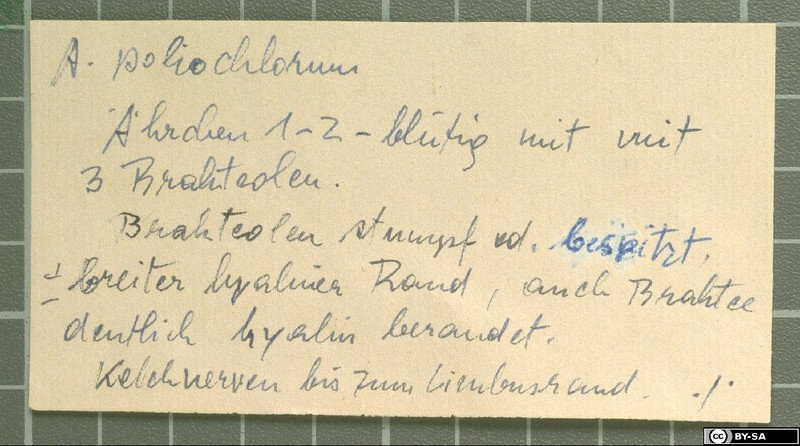 A. poliochlorum
Ährchen 1-2-blütig mit mit
3 Brakteolen.
Brakteolen stumpf od. bespitzt,
± breiter hyaliner Rand, auch Braktee
deutlich hyalin berandet.
Kelchnerven bis zum Limbusrand. ./.
cc BY-SA